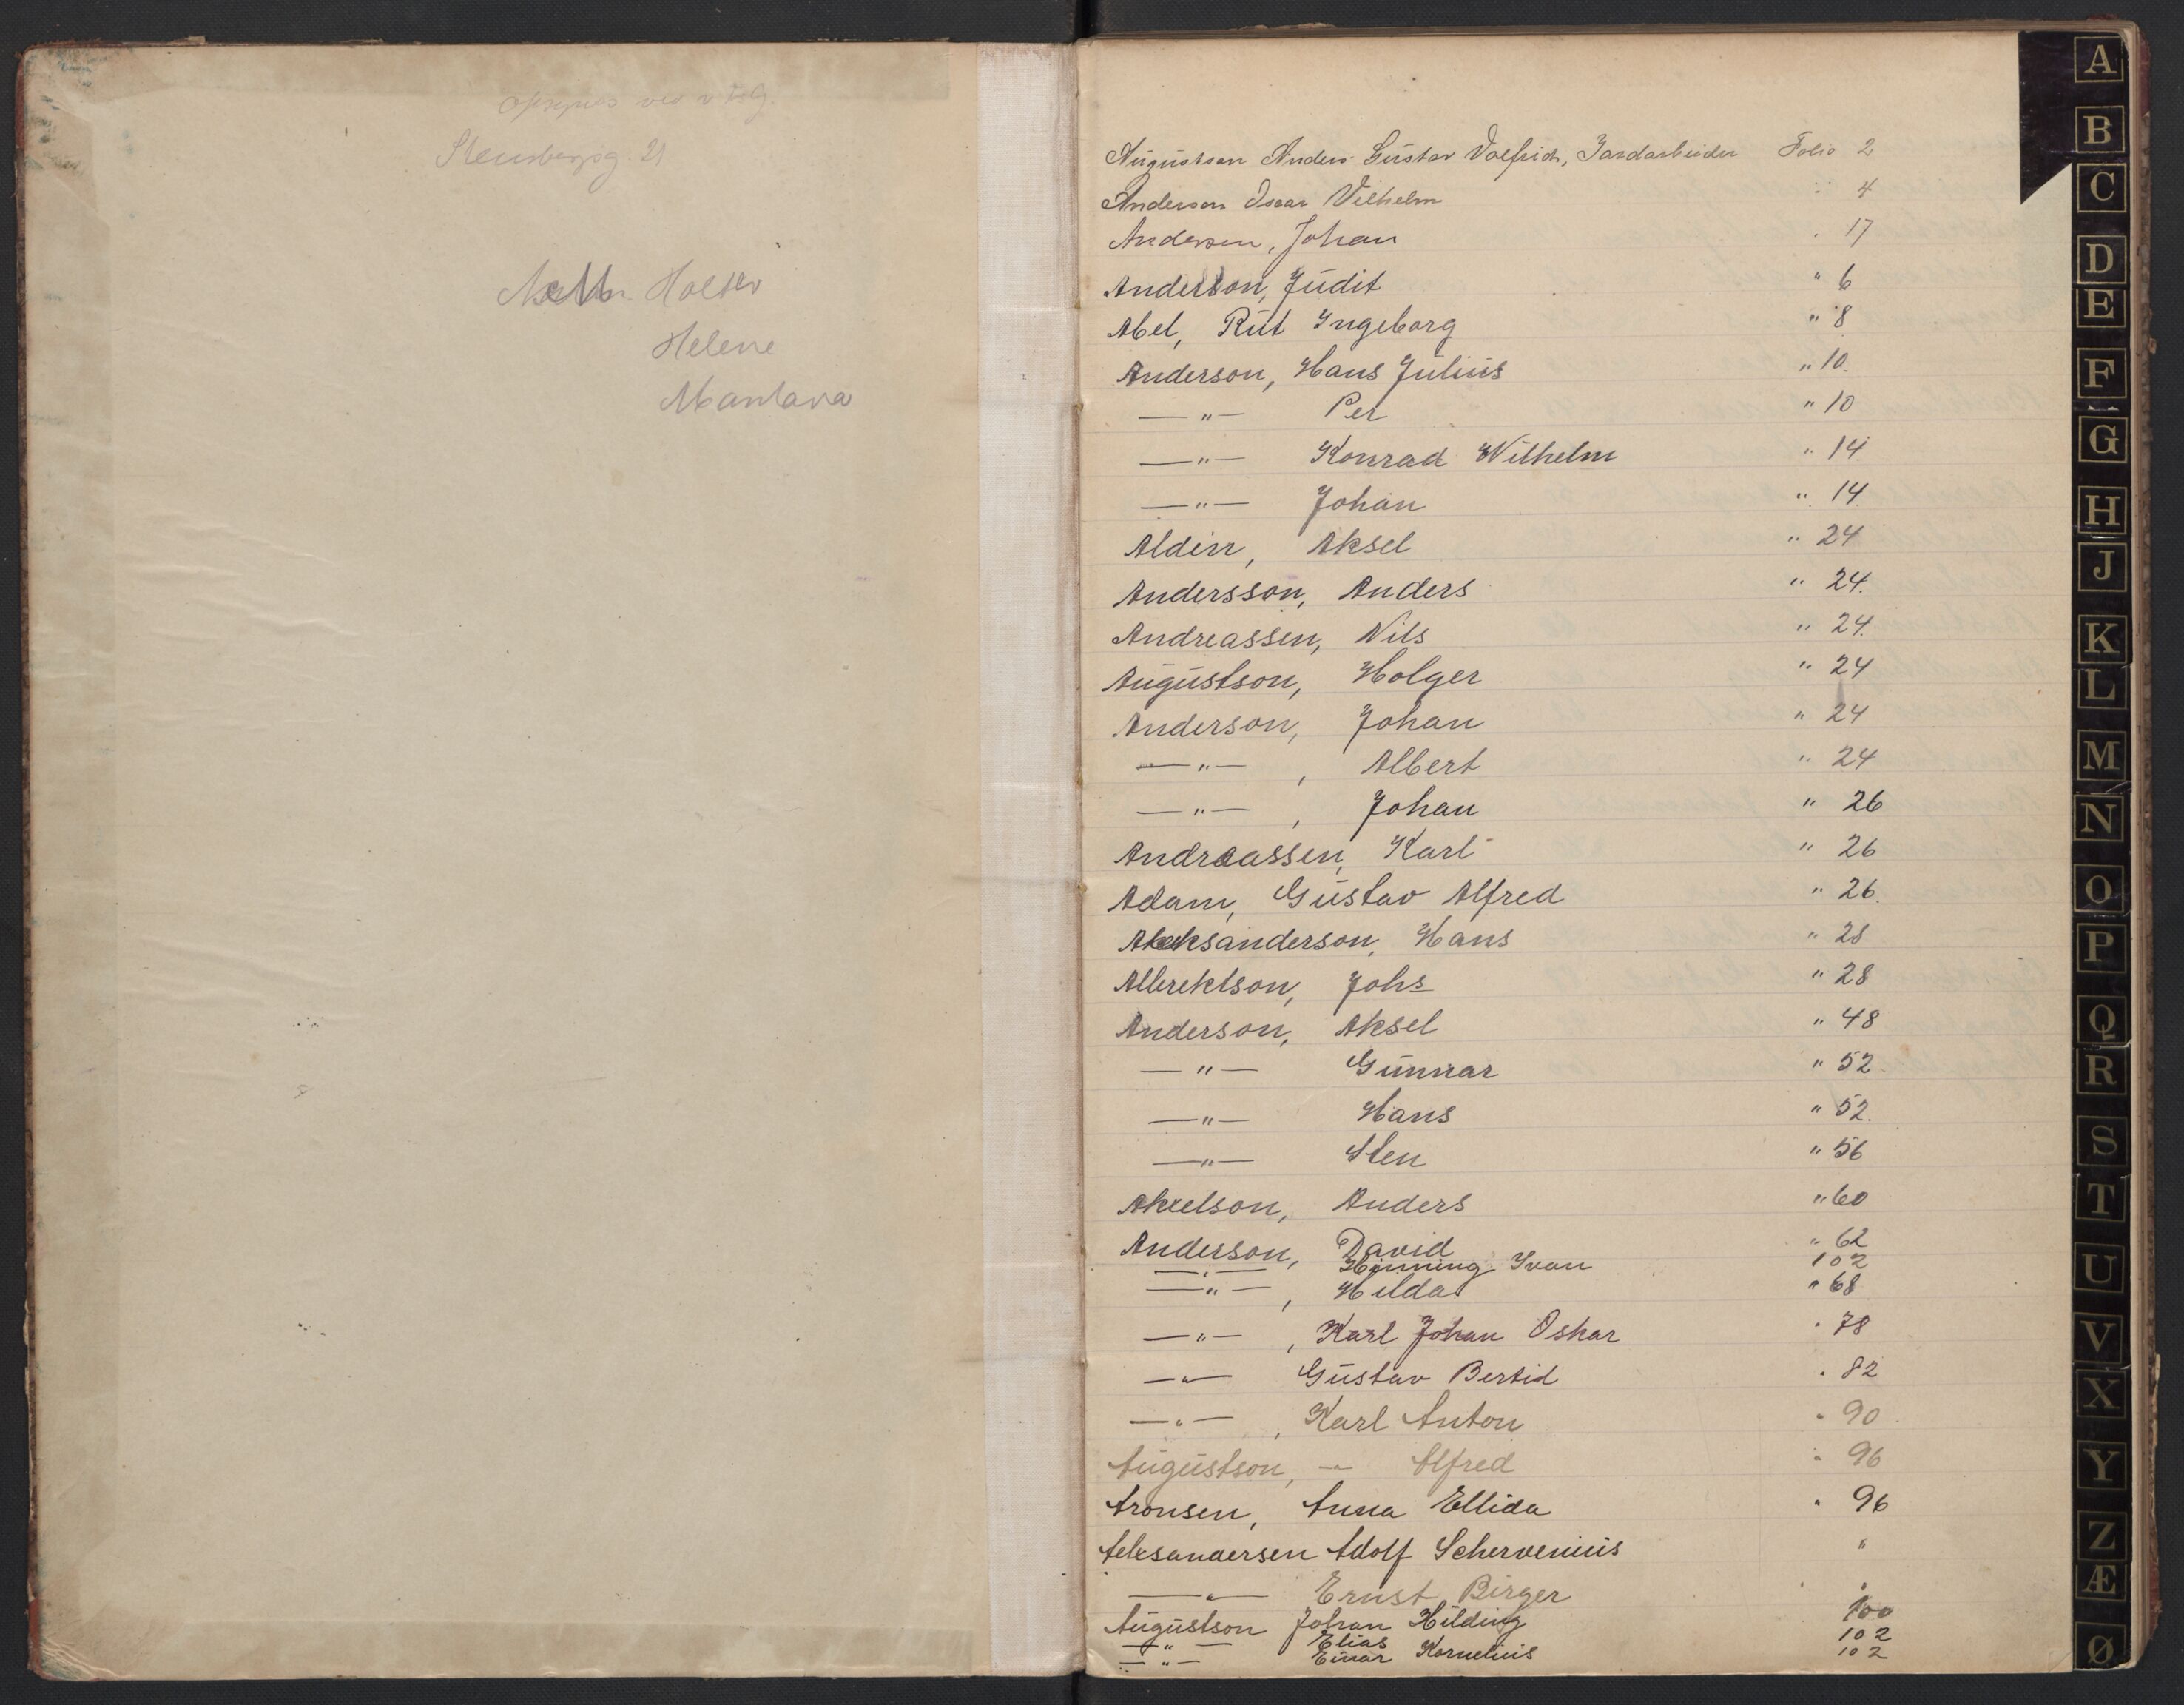 Stensbergg. 21
Helene
Augustson Anders Gustav Valfrid, Jordarbeider Folio 2
Anderson Oscar Vilhelm " 4
Andersen, Johan " 17
Anderson, Judit " 6
Abel, Rut Ingeborg " 8
Anderson, Hans Julius " 10.
—"— Per " 10
—"— Konrad Wilhelm " 14
—"— Johan " 14
Aldin, Aksel " 24
Andersson, Anders " 24.
Andreassen, Nils " 24.
Augustson, Holger " 24
Anderson, Johan " 24
—"— , Albert " 24
—"— , Johan " 26
Andreassen, Karl " 26
Adam, Gustav Alfred " 26.
Aleksanderson, Hans " 28
Albrektson, Johs " 28
Anderson, Aksel " 48
—"— Gunnar " 52
—"— Hans " 52.
—"— Sten " 56
Akselson, Anders " 60
Anderson, David " 62
—"— Henning Ivan 102
—"— , Hilda " 68
—"— , Karl Johan Oskar " 78
—"— Gustav Bertid " 82
—"— , Karl Anton " 90
Augustson, — Alfred " 96
Aronsen, Anna Ellida " 96
Aleksandersen Adolf Schervenius "
—"— Ernst Birger "
Augustson Johan Hilding 100
—"— Elias 102
—"— Einar Kornelius 102
A
B
C
D
E
F
G
H
J
K
L
M
N
O
P
Q
R
S
T
U
V
X
Y
Z
Æ
Ø